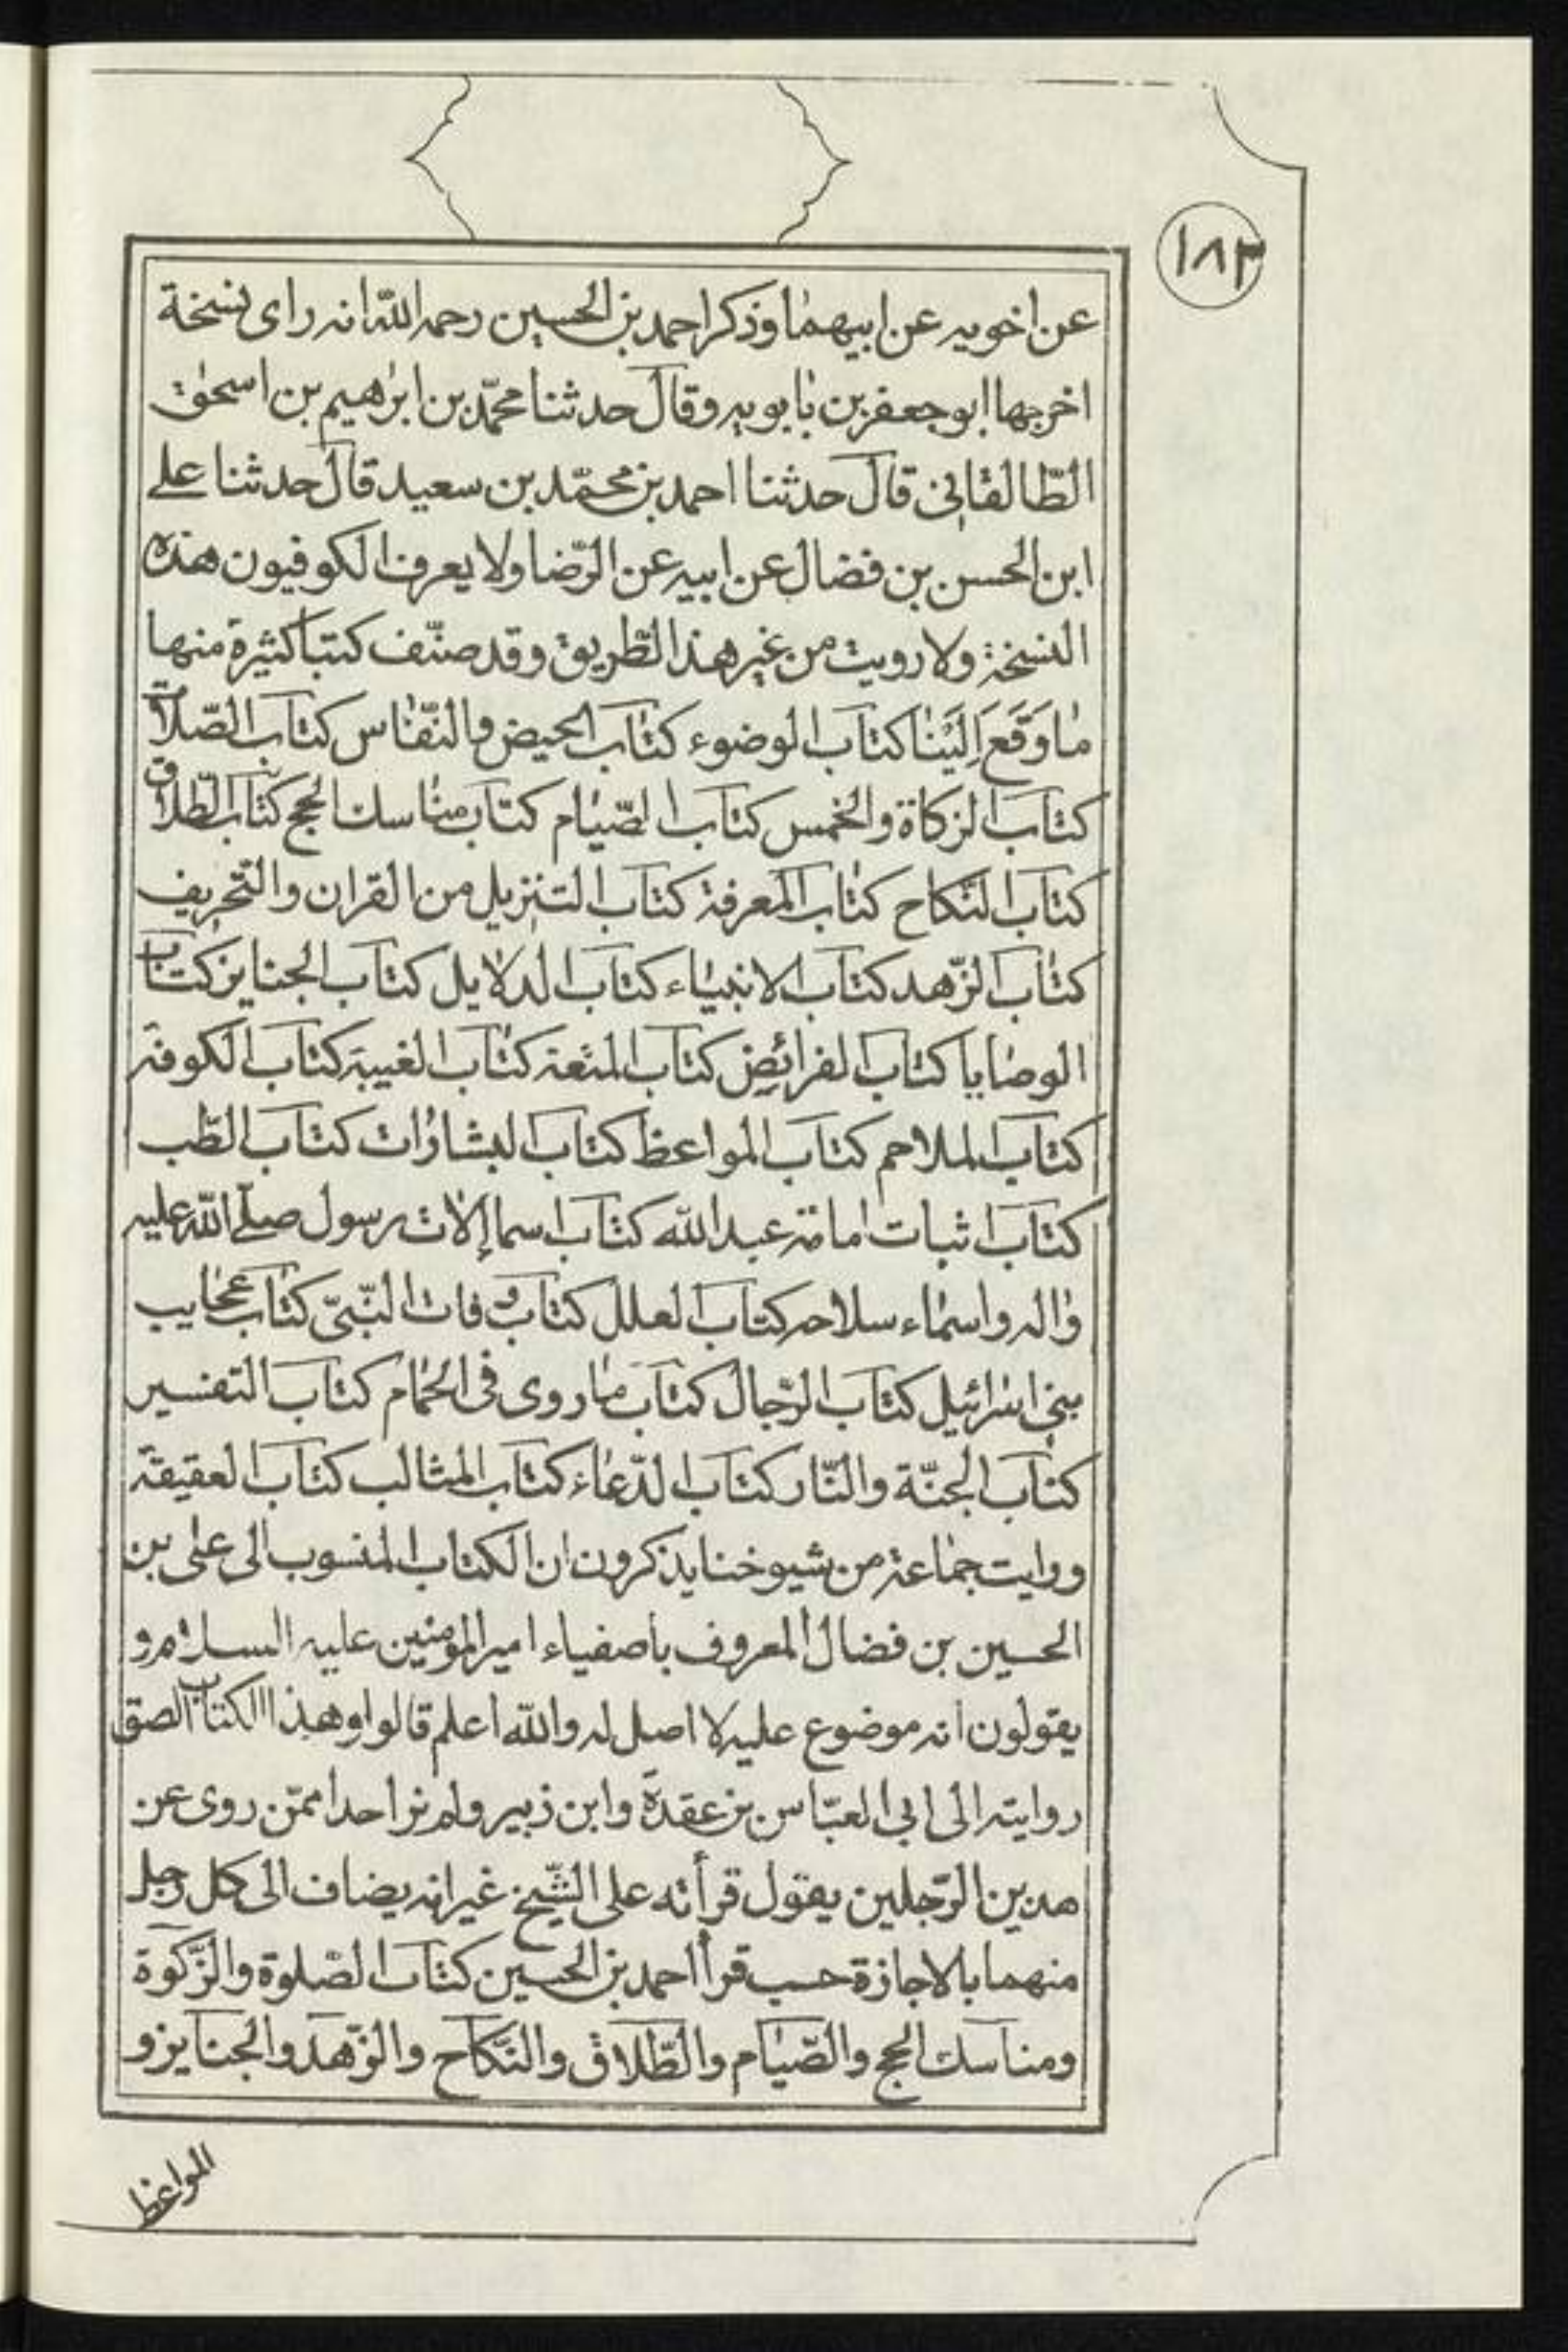 ١٨٣
عن اخويه عن ابيهما وذكر احمد بن الحسين رحمه الله انه راى نسخة
اخرجها ابو جعفر بن بابويه وقال حدثنا محمّد بن ابرٰهيم بن اسحٰق
الطّالقانى قال حدثنا احمد بن محمّد بن سعيد قال حدثنا على
ابن الحسن بن فضال عن ابيه عن الرّضا ولا يعرف الكوفيون هذه
النسخة ولا رويت من غير هذا الطّريق وقد صنّف كتبا كثيرة منها
ما وَقَعَ اِلَيْنا كتاب الوضوء كتاب الحيض والنّفاس كتاب الصّلاة
كتاب الزكاة والخمس كتاب الصّيام كتاب مناسك الحج كتاب الطّلاق
كتاب النّكاح كتاب المعرفة كتاب التنزيل من القران والتّحريف
كتاب الزّهد كتاب الانبياء كتاب الدلايل كتاب الجنايز كتاب
الوصايا كتاب الفرائض كتاب المتعة كتاب الغيبة كتاب الكوفة
كتاب الملاحم كتاب المواعظ كتاب البشارات كتاب الطّب
كتاب اثبات امامة عبد الله كتاب اسما الات رسول صلّى الله عليه
واله واسماء سلاحه كتاب العلل كتاب وفات النّبىّ كتاب عجايب
بنى اسرائيل كتاب الرّجال كتاب ما روى فى الحمّام كتاب التفسير
كتاب الجنّة والنّار كتاب الدّعاء كتاب المثالب كتاب العقيقة
ورايت جماعة من شيوخنا يذكرون ان الكتاب المنسوب الى على بن
الحسين بن فضال المعروف باصفياء امير المومنين عليه السلام و
يقولون انه موضوع عليه لا اصل له والله اعلم قالوا وهذا الكتاب الصق
روايته الى ابى العبّاس بن عقدة وابن زبير ولم نر احدا ممّن روى عن
هذين الرّجلين يقول قرأته على الشّيخ غير انه يضاف الى كل رجل
منهما بالاجازة حسب قرأ احمد بن الحسين كتاب الصّلوة والزّكوة
ومناسك الحج والصّيام والطّلاق والنّكاح والزّهد والجنايز و
المواعظ